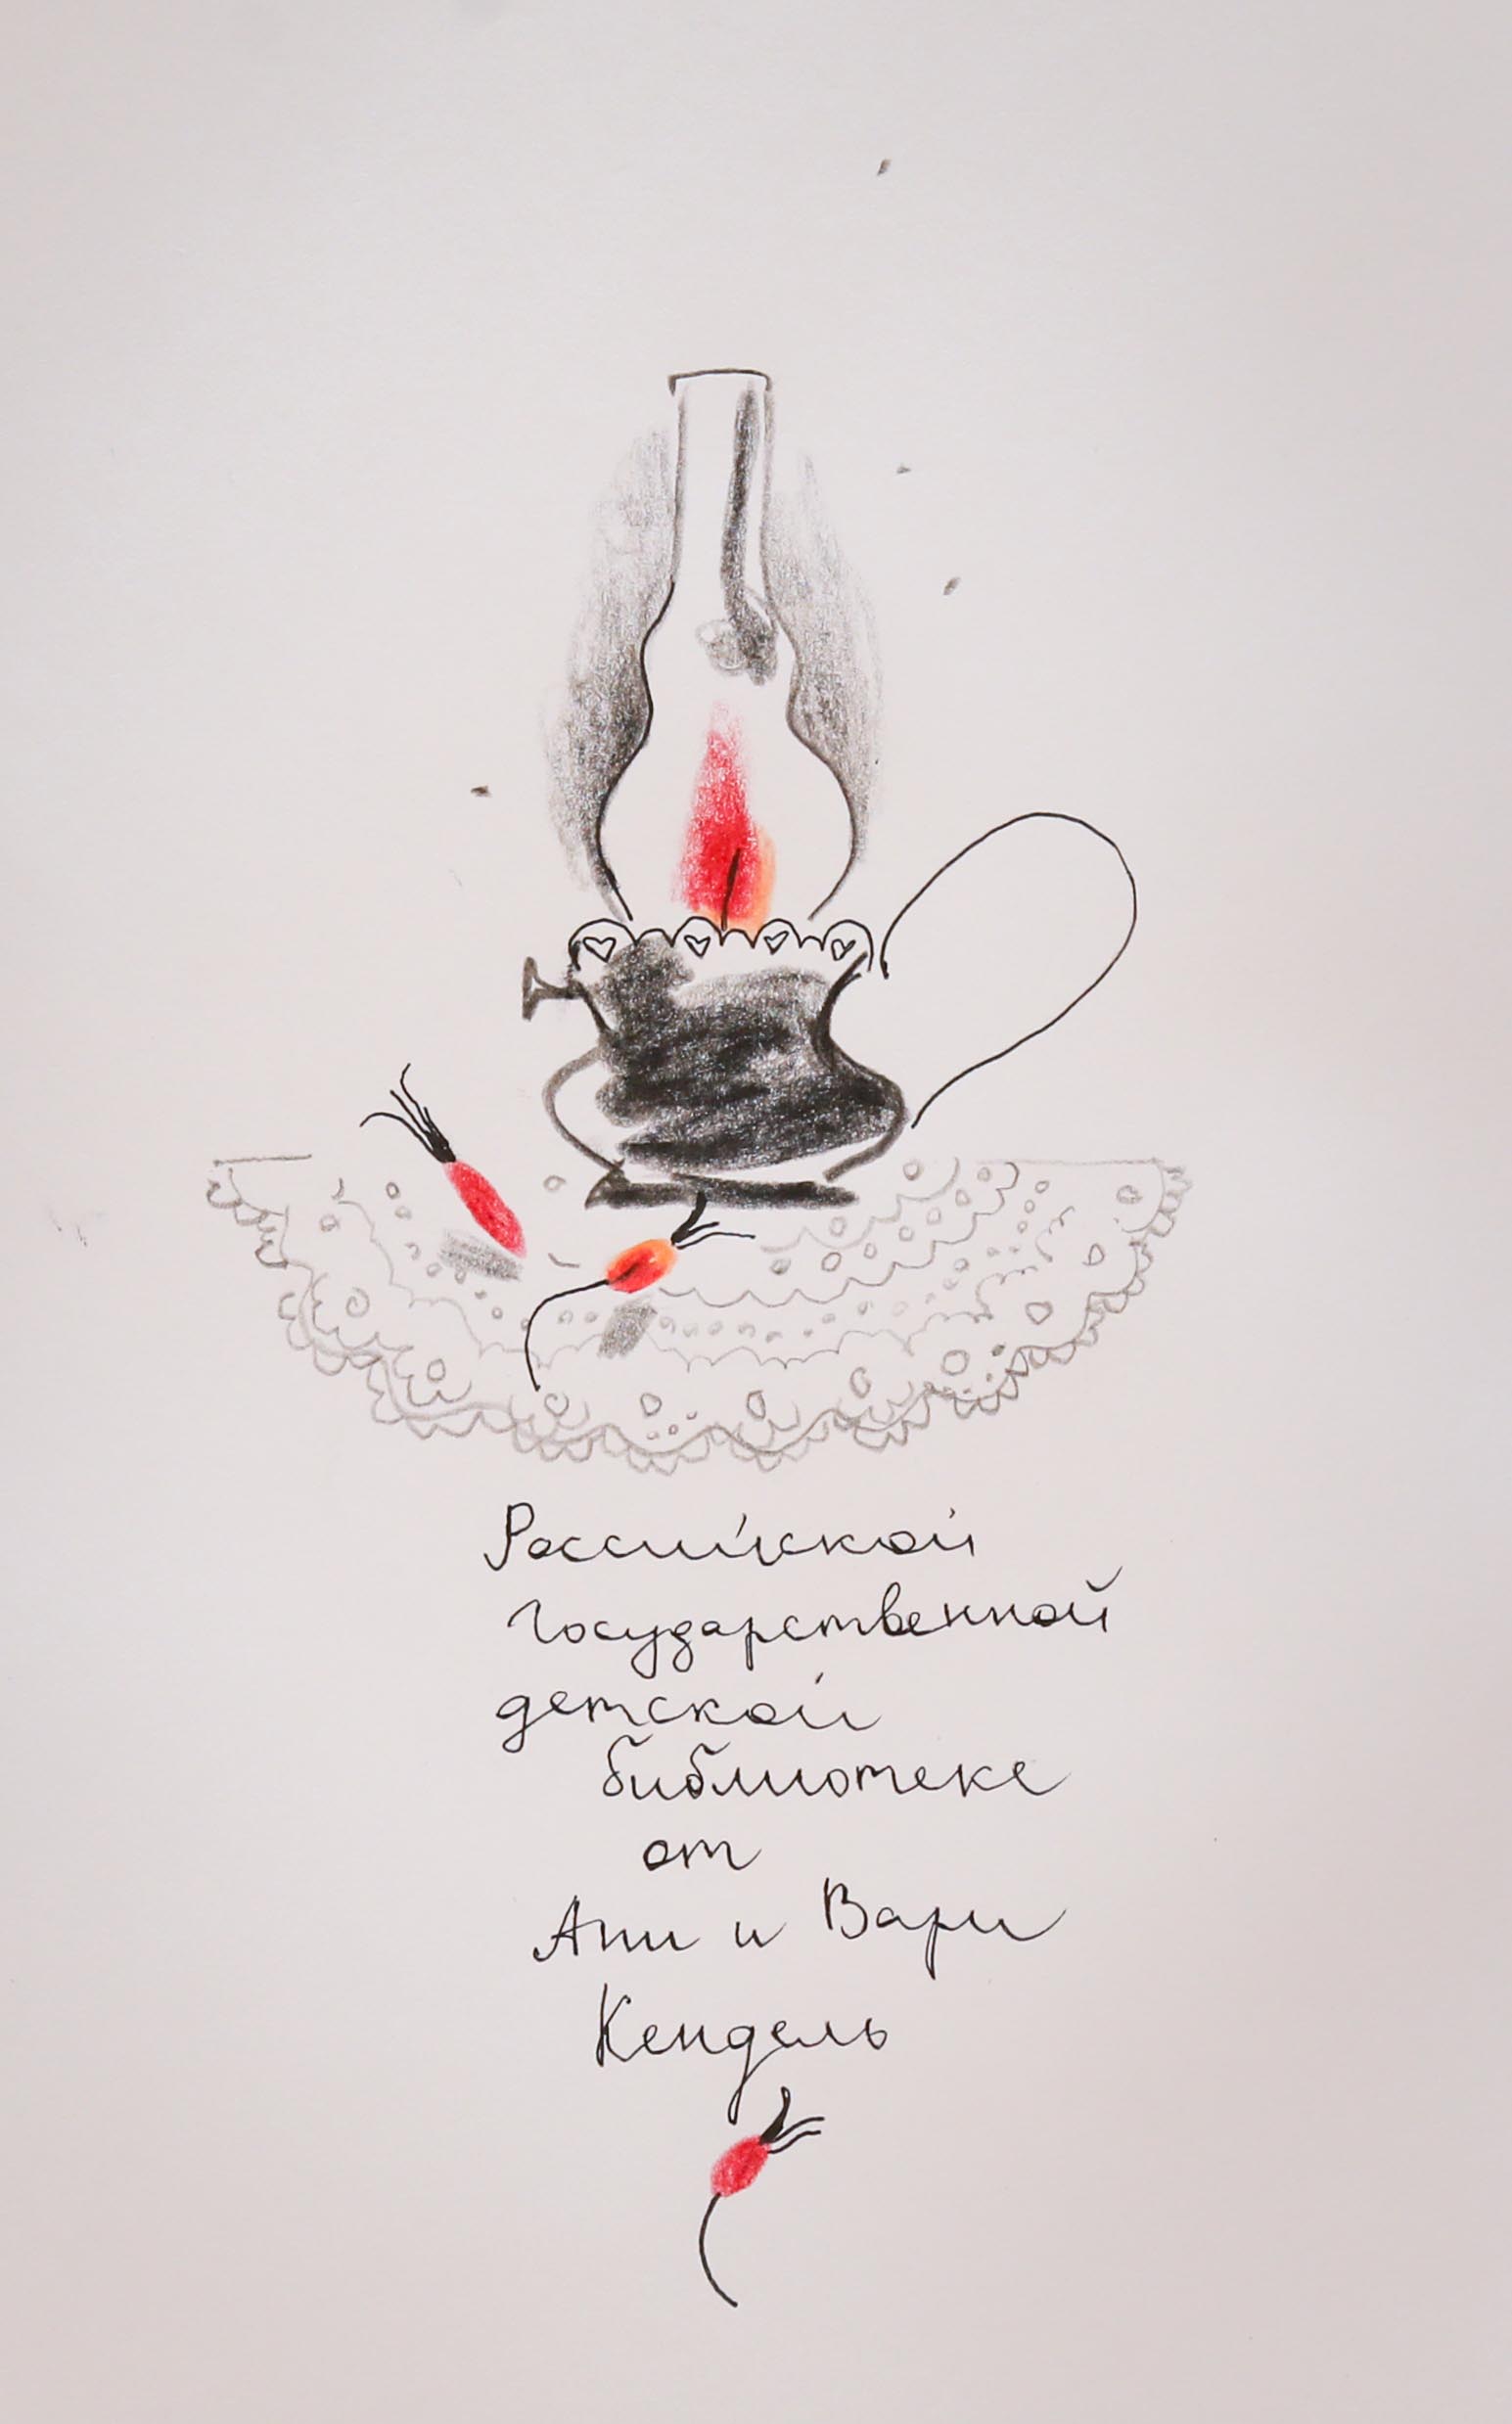 Российской
государственной
детской
библиотеке
от
Ани и Вари
Кендель